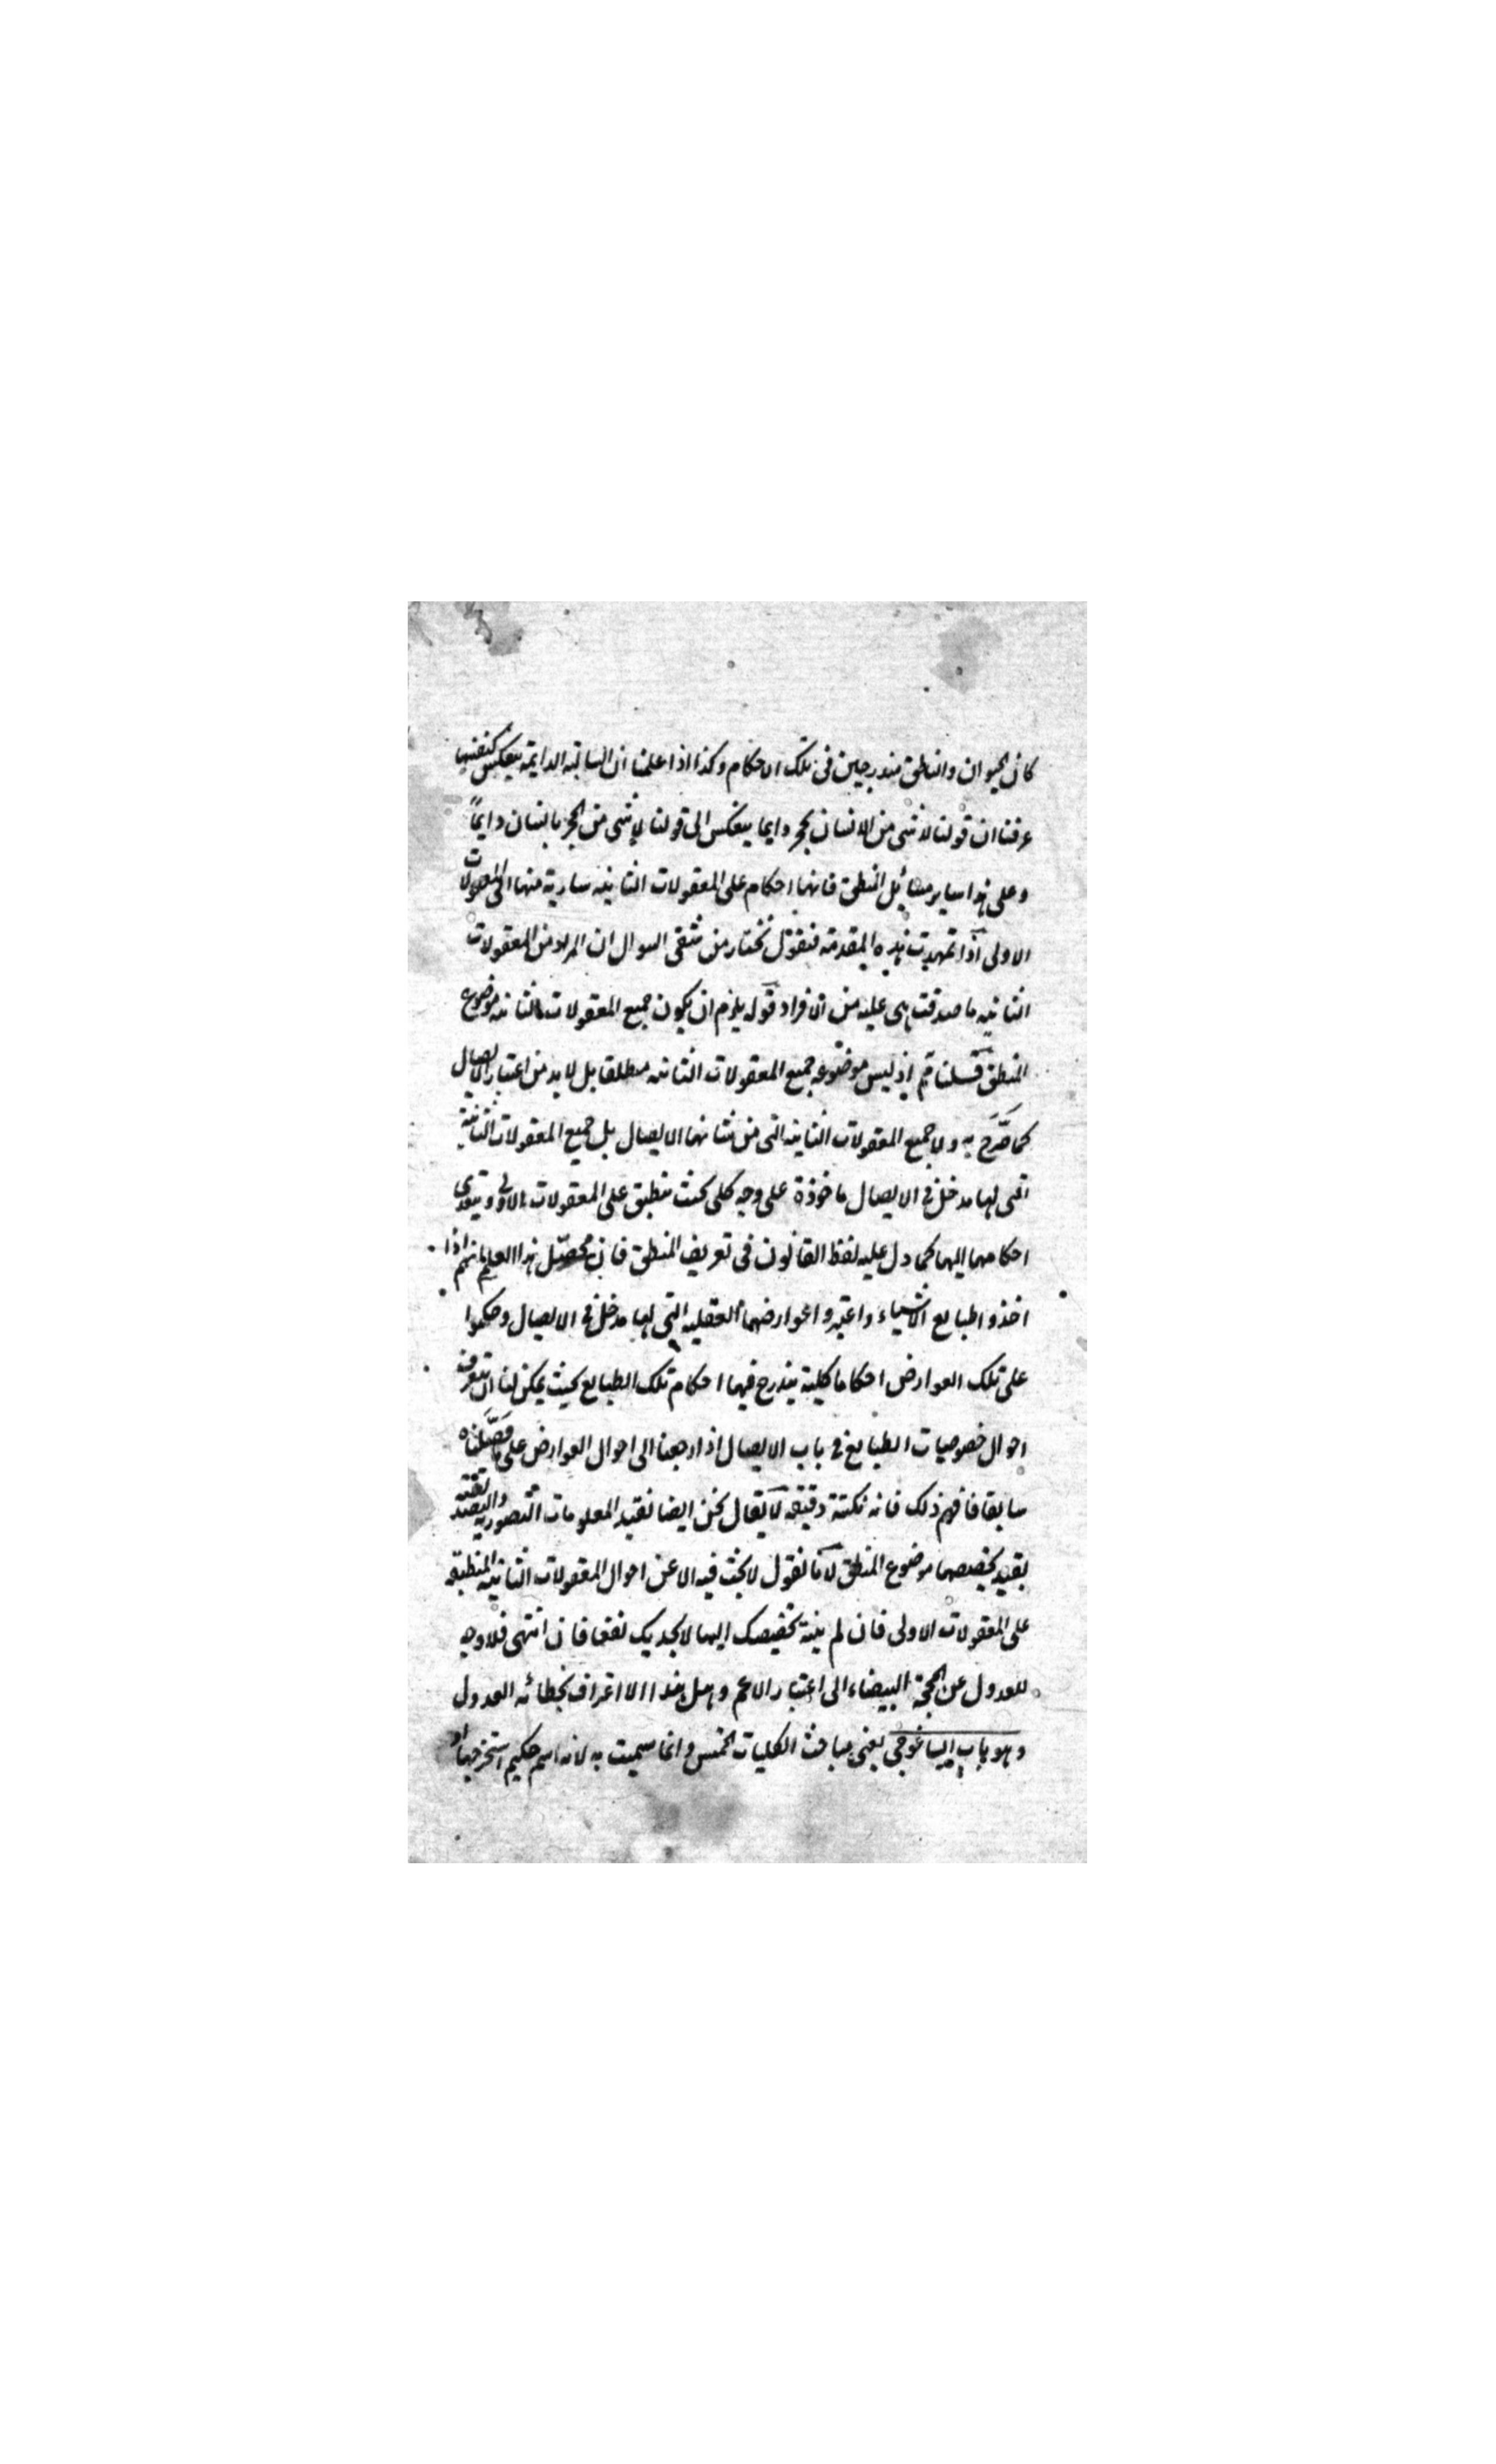 كان الحيوان والناطق مندرجين فى تلك الاحكام وكذا اذا علمنا ان السالبة الدايمة ينعكس كنفسها
عرفنا ان قولنا لا شى من الانسان بحجر دايما ينعكس الى قولنا لا شى من الحجر بانسان دايماً
وعلى هذا ساير مسائل المنطق فانها احكام على المعقولات الثانيه سارية منها الى المعقولات
الاولى اذا تمهدت هذه المقدمة فنقول نختار من شقى السوال ان المراد من المعقولات
الثانيه ما صدقت هى عليه من الافراد قوله يلزم ان يكون جميع المعقولات الثانيه موضوع
المنطق قلنا تم اذ ليس موضوعه جميع المعقولات الثانيه مطلقا بل لا بد من اعتبار الايصال
كما صَرَّح به ولا جميع المعقولات الثانيه التى من شانها الايصال بل جميع المعقولات الثانية
التى لها مدخل فى الايصال ماخوذة على وجه كلى بحيث ينطبق على المعقولات الاولى ويتعدى
احكامها اليها كما دل عليه لفظ القانون فى تعريف المنطق فان محصّل هذا العلم انهم اذا
اخذوا طبايع الاشياء واعتبروا عوارضها العقليه التى لها مدخل فى الايصال وحكموا
على تلك العوارض احكاما كلية يندرج فيها احكام تلك الطبايع بحيث يمكن لنا ان نتعرف
احوال خصوصيات الطبايع فى باب الايصال اذا رجعنا الى احوال العوارض على ما فَصَّلناه
سابقا فافهم ذلك فانه نكتة دقيقه لا يقال نحن ايضا نقيد المعلومات التصوريه والتصديقيه
بقيد يخصصها موضوع المنطق لانا نقول لا بحث فيه الا عن احوال المعقولات الثانيه المنطبقه
على المعقولات الاولى فان لم ينته تخصيصك اليها لا يجديك نفعا فان انتهى فلا وجه
للعدول عن المحجة البيضاء الى اعتبار الاعم وهل هذا الا اعتراف بخطائه العدول
وهو باب ايساغوجى يعنى مباحث الكليات الخمس وانما سميت به لانه اسم حكيم استخرجها او